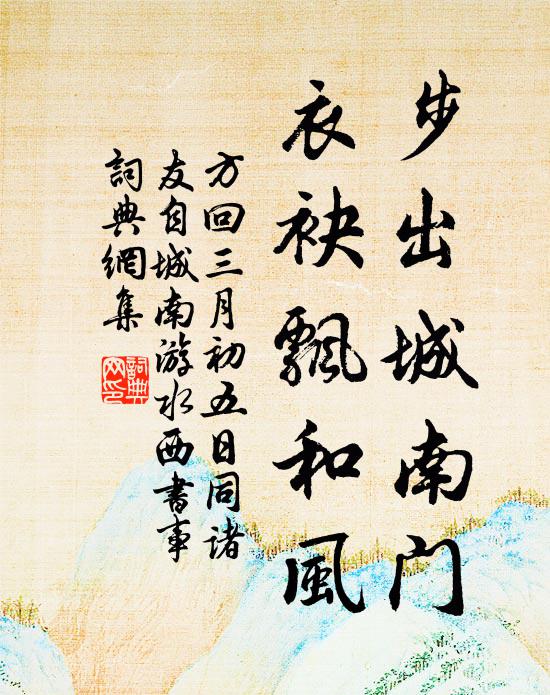 步出城南门
衣袂飄和風
方回三月初五日同诸
友自城南游水西書事
詞典網集
詞典
网印